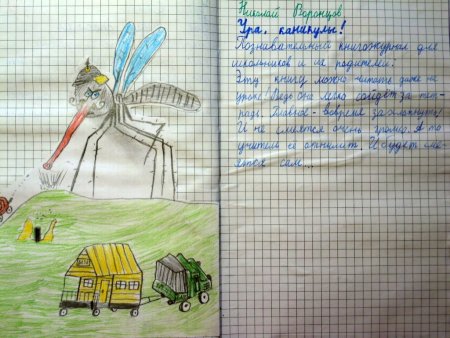 Николай Воронцов
Ура, каникулы!
Познивательный книгожурнал для
школьников и их родителей!
Эту книгу можно читать даже на
уроке! Ведь она легко сойдёт за тет-
радь. Главное - вовремя захлопнуть!
И не смеяться очень громко. А то
учитель её отнимет. И будет сме-
яться сам...